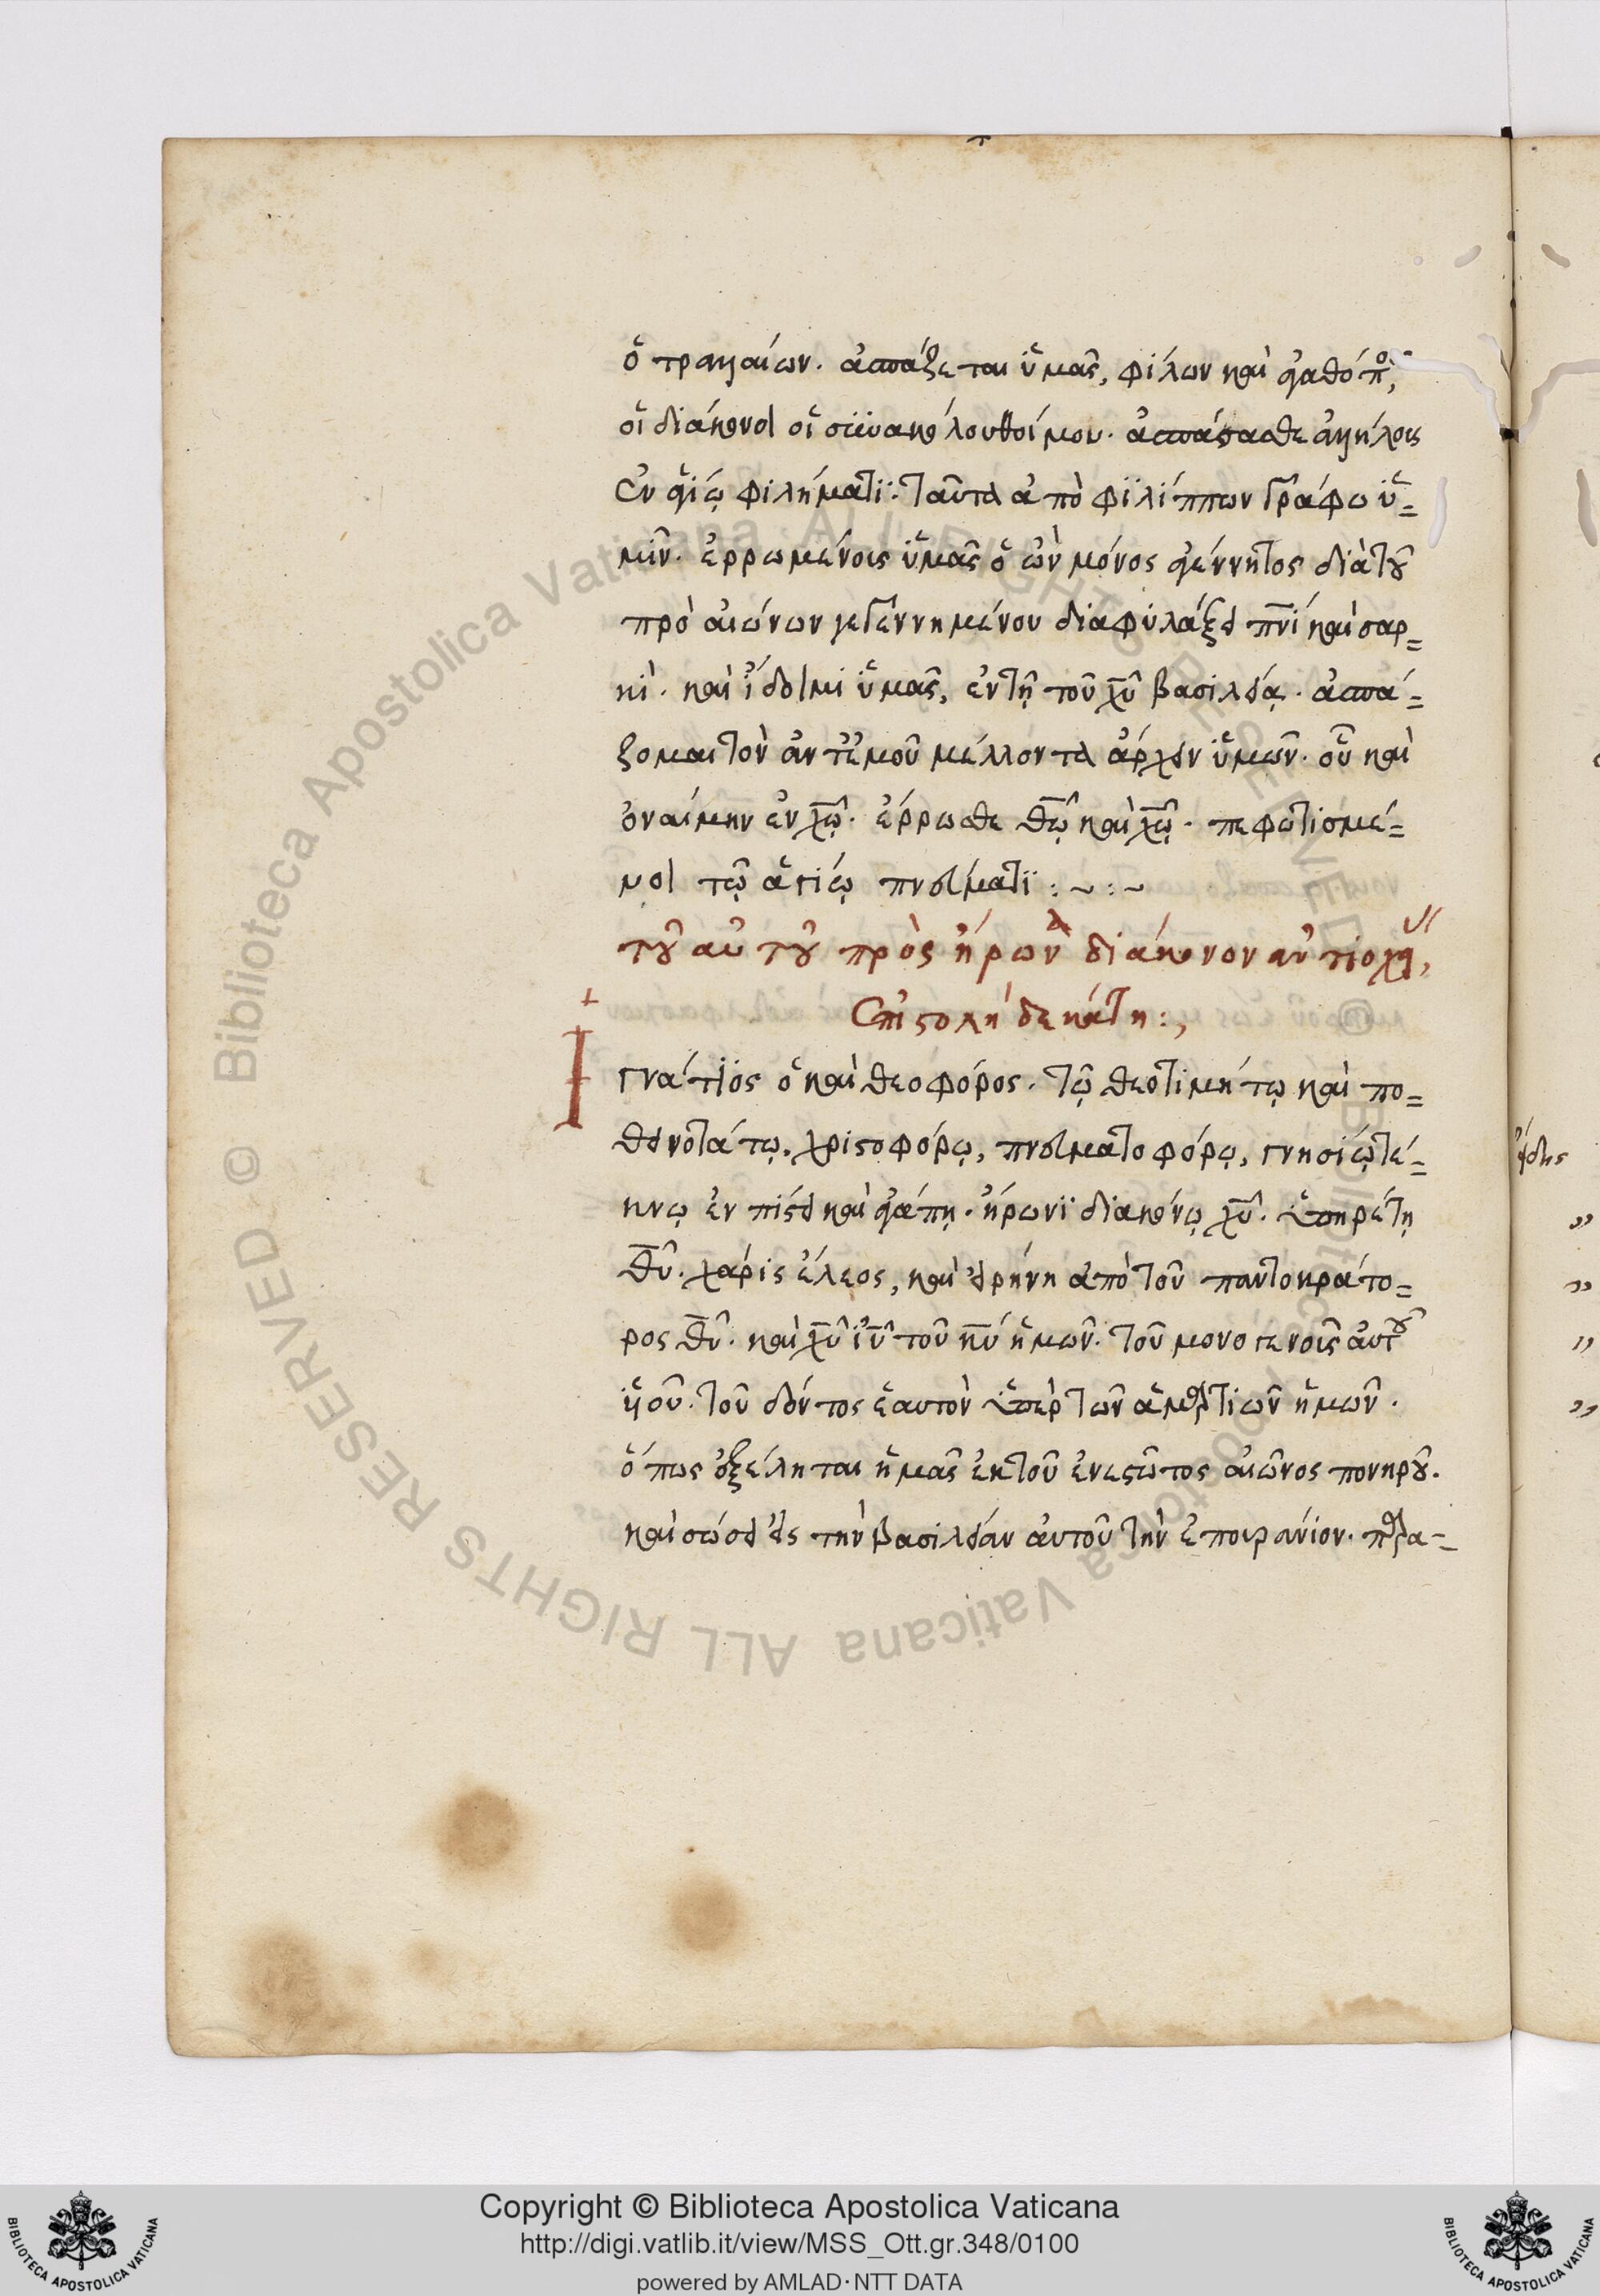 ὁ τραγαίων. ἀσπάζεται ὑμᾶς, φίλων καὶ ἀγαθόπους,
οἱ διάκονοι οἱ συνακόλουθοί μου. ἀσπάσασθε ἀλλήλοις
ἐν ἁγίῳ φιλήματϊ. ταῦτα ἀπὸ φιλίππων γράφω ὑ=
μῖν. ἐρρωμένοις ὑμᾶς ὁ ὢν μόνος ἀγέννητος διὰ τοῦ
πρὸ αἰώνων γεγεννημένου διαφυλάξει πνί καὶ σαρ=
κὶ. καὶ ἴδοιμι ὑμᾶς, ἐν τῇ τοῦ χυ βασιλείᾳ. ἀσπά=
ζομαι τὸν ἀντ' ἐμοῦ μέλλοντα ἄρχειν ὑμῶν. οὗ καὶ
ὀναίμην ἐν χῶ. ἔρρωσθε θῶ καὶ χῶ. πεφωτισμέ=
νοι τῷ ἁγίῳ πνεύματϊ : ~ : ~
τοῦ αὐτοῦ πρὸς ἥρωνα διάκονον ἀντιοχείας,
Ἐπιστολὴ δεκάτη :,
Ἰγνάτϊος ὁ καὶ θεοφόρος. τῷ θεοτιμήτῳ καὶ πο=
θεινοτάτῳ. χριστοφόρῳ, πνευματοφόρῳ, γνησιωτέ=
κνῳ ἐν πίστει καὶ ἀγάπῃ. ἥρωνϊ διακόνῳ χυ. ὑπηρέτῃ
θυ. χάρις ἔλεος, καὶ εἰρήνη ἀπὸ τοῦ παντοκράτο=
ρος θυ. καὶ χυ ιυ τοῦ κυ ἡμῶν. τοῦ μονογενοῦς αὐτοῦ
υἱοῦ. τοῦ δόντος ἑαυτὸν ὑπὲρ τῶν ἁμαρτιῶν ἡμῶν.
ὅπως ἐξέληται ἡμᾶς ἐκ τοῦ ἐνεστῶτος αἰῶνος πονηροῦ.
καὶ σώσει εἰς τὴν βασιλείαν αὐτοῦ τὴν ἐπουράνιον. παρα=
Copyright © Biblioteca Apostolica Vaticana
http://digi.vatlib.it/view/MSS_Ott.gr.348/0100
powered by AMLAD·NTT DATA